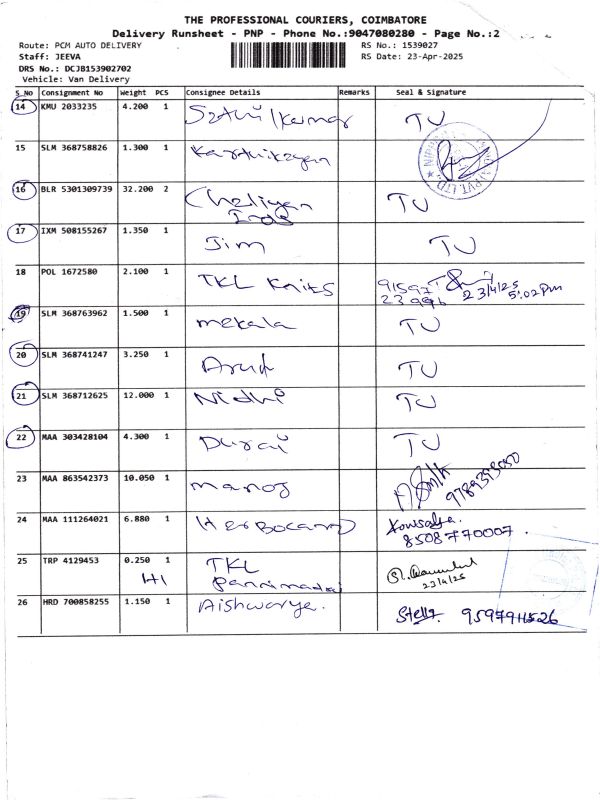 THE PROFESSIONAL COURIERS, COIMBATORE
Delivery Runsheet - PNP - Phone No.:9047080280 - Page No.:2
Route: PCM AUTO DELIVERY
RS No.: 1539027
Staff: JEEVA
RS Date: 23-Apr-2025
DRS No.: DCJB153902702
Vehicle: Van Delivery
S_No Consignment No Weight PCS Consignee Details Remarks Seal & Signature
14 KMU 2033235 4.200 1 TU
15 SLM 368758826 1.300 1 Karthikeyan
16 BLR 5301309739 32.200 2 TU
17 IXM 508155267 1.350 1 Jim TU
18 POL 1672580 2.100 1 TKL Knits 23/4/25
5:02 Pm
19 SLM 368763962 1.500 1 mekala TU
20 SLM 368741247 3.250 1 TU
21 SLM 368712625 12.000 1 Nidhi TU
22 MAA 303428104 4.300 1 Durai TU
23 MAA 863542373 10.050 1 manoj
24 MAA 111264021 6.880 1 Kowsalya.
8508770007.
25 TRP 4129453 0.250 1 TKL
23/4/25
26 HRD 700858255 1.150 1 Aishwarya. Stella 9597911526